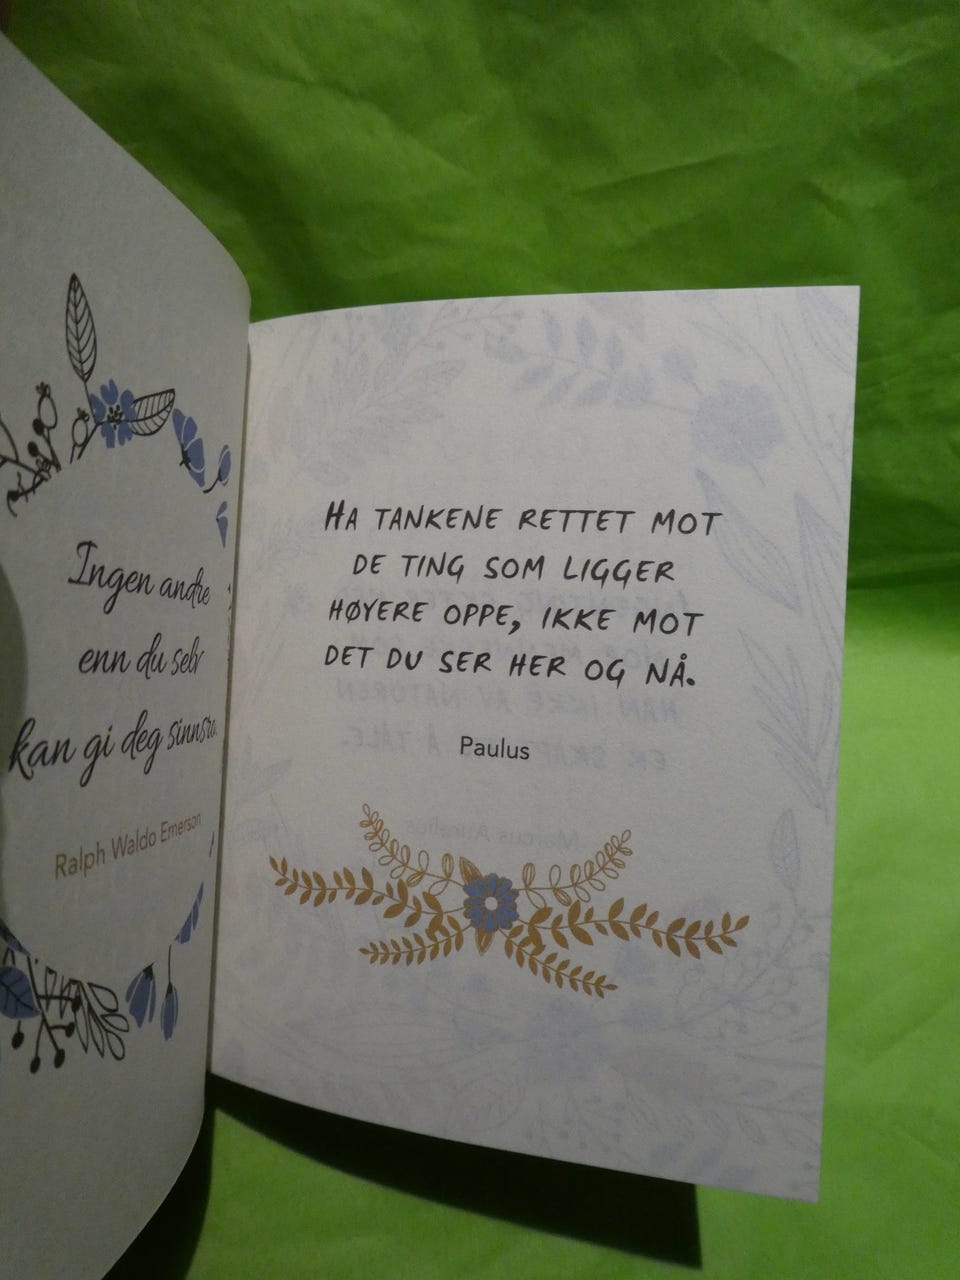 Ingen andre
enn du selv
kan gi deg sinnsro.
Ralph Waldo Emerson
HA TANKENE RETTET MOT
DE TING SOM LIGGER
HØYERE OPPE, IKKE MOT
DET DU SER HER OG NÅ.
Paulus
HAN IKKE AV NATUREN
Marcus Aurelius